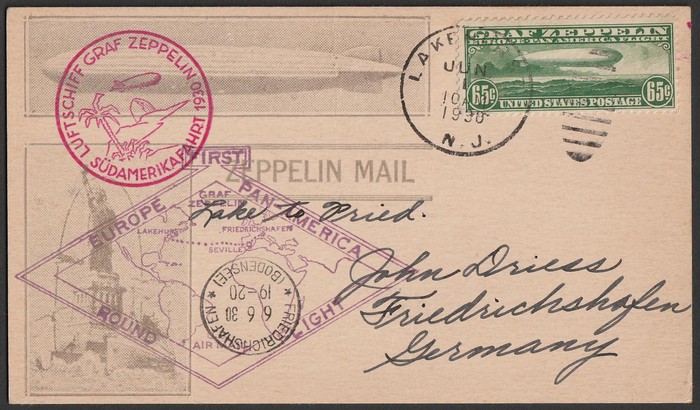 LUFTSCHIFF GRAF ZEPPELIN 1930
SÜDAMERIKAFAHRT
GRAF ZEPPELIN
EUROPE PAN-AMERICA FLIGHT
65c 65c
UNITED STATES POSTAGE
JUN
1
10
1930
N. J.
ZEPPELIN MAIL
FIRST
EUROPE PAN-AMERICA
ROUND FLIGHT
GRAF
ZEPPELIN
LAKEHURST
FRIEDRICHSHAFEN
SEVILLE
AIR MAIL
Lake to Fried.
* FRIEDRICHSHAFEN *
(BODENSEE)
6 6 30
19-20
John Driess
Friedrichshafen
Germany